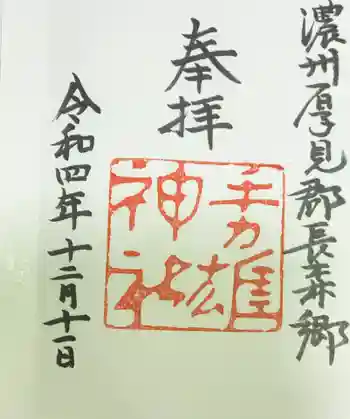 濃州厚見郡長森郷
奉拝
手力雄
神社
令和四年十二月十一日